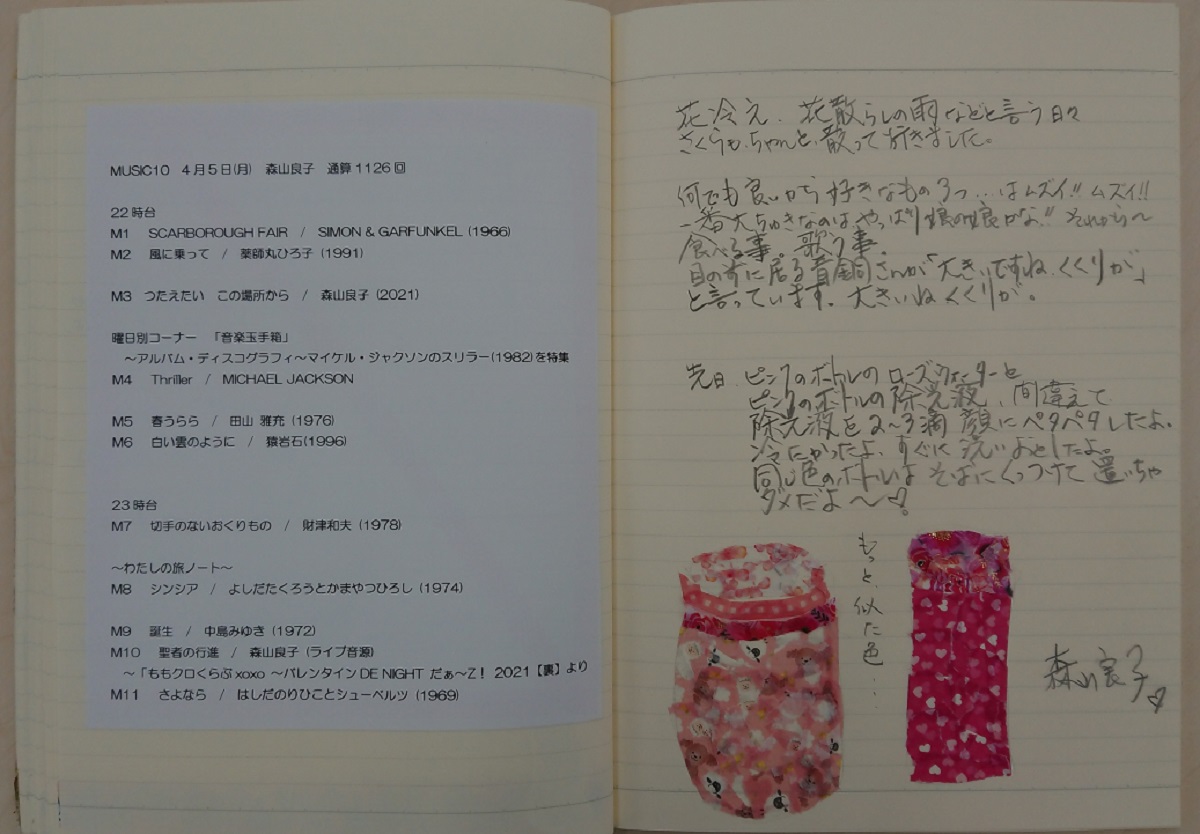 MUSIC10 4月5日(月) 森山良子 通算1126回
22時台
M1 SCARBOROUGH FAIR / SIMON & GARFUNKEL (1966)
M2 風に乗って / 薬師丸ひろ子 (1991)
M3 つたえたい この場所から / 森山良子 (2021)
曜日別コーナー 「音楽玉手箱」
～アルバム・ディスコグラフィ～マイケル・ジャクソンのスリラー(1982)を特集
M4 Thriller / MICHAEL JACKSON
M5 春うらら / 田山 雅充 (1976)
M6 白い雲のように / 猿岩石(1996)
23時台
M7 切手のないおくりもの / 財津和夫 (1978)
～わたしの旅ノート～
M8 シンシア / よしだたくろうとかまやつひろし (1974)
M9 誕生 / 中島みゆき (1972)
M10 聖者の行進 / 森山良子 (ライブ音源)
～「ももクロくらぶxoxo ～バレンタイン DE NIGHT だぁ～Z! 2021【裏】より
M11 さよなら / はしだのりひことシューベルツ (1969)
花冷え、花散らしの雨などと言う日々
さくらも、ちゃんと、散って行きました。
何でも良いから好きなもの3つ…はムズイ!! ムズイ!!
一番大ちゅきなのはやっぱり娘の娘かな!! それから～
食べる事。歌う事。
目の前に居る音銅さんが「大きいですねくくりが」
と言っています。大きいねくくりが。
先日、ピンクのボトルのローズウォーターと
ピンクのボトルの除光液、間違えて
除光液を2～3滴 顔にペタペタしたよ。
冷たかったよ、すぐに洗いおとしたよ。
同じ色のボトルは そばにくっつけて 置いちゃ
ダメだよ～♡!
もっと似た色…
森山良子♡